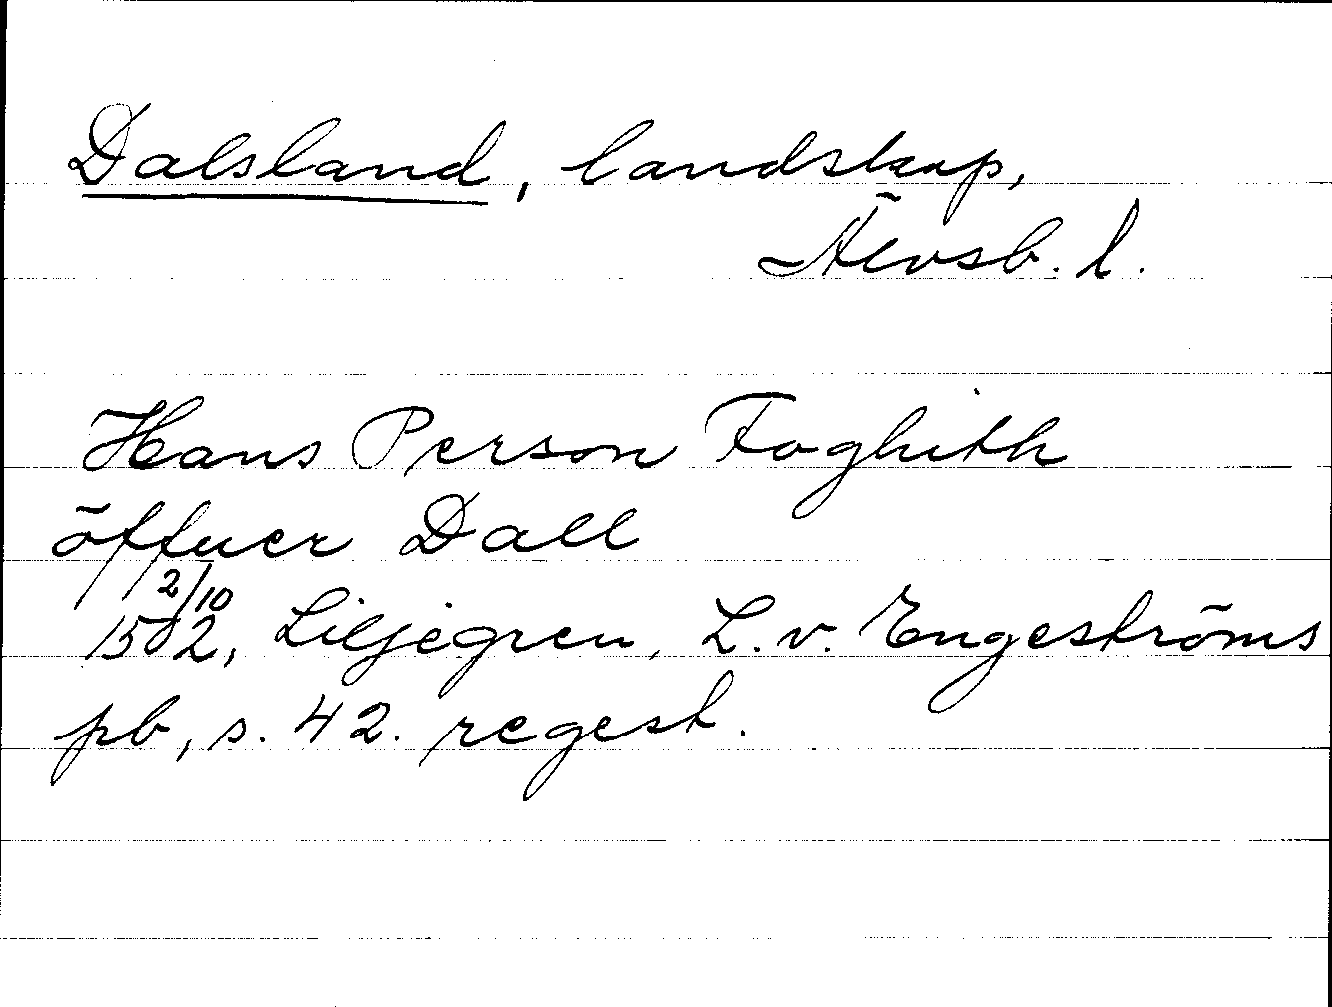 Dalsland, landskap,
Älvsb. l.
Hans Person Foghith
öffuer Dall
2/10
1502, Liljegren, L. v. Engeströms
pb, s. 42. regest.